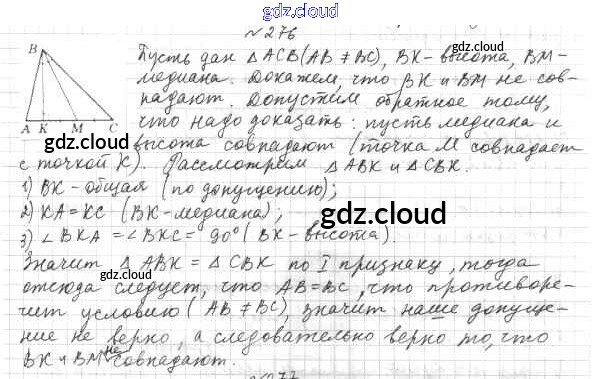 gdz.cloud
№276
B
Пусть дан △ ACB (AB ≠ BC), BK - высота, BM -
медиана. Докажем, что BK и BM не сов-
падают. Допустим обратное тому,
A K M C
что надо доказать: пусть медиана и
gdz.cloud
высота совпадают (точка M совпадает
gdz.cloud
с точкой K). Рассмотрим △ ABK и △ CBK.
1) BK - общая (по допущению);
2) KA = KC (BK - медиана);
gdz.cloud
3) ∠ BKA = ∠ BKC = 90° (BK - высота).
Значит △ ABK = △ CBK по I признаку, тогда
отсюда следует, что AB = BC, что противоре-
чит условию (AB ≠ BC), значит наше допуще-
ние не верно, а следовательно верно то, что
BK и BM не совпадают.
gdz.cloud
№277